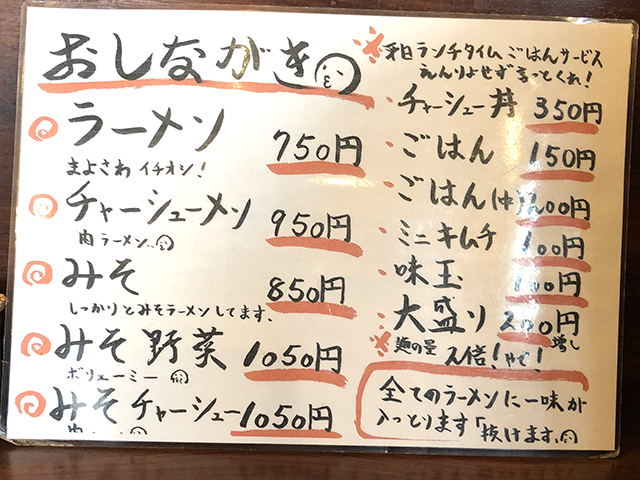 おしながき
ラーメン 750円
まよさわ イチオシ!
チャーシューメン 950円
肉ラーメン..
みそ 850円
しっかりとみそラーメンしてます、
みそ野菜 1050円
ボリューミー
みそチャーシュー 1050円
肉
平日ランチタイム ごはんサービス
えんりょせず まっとくれ!
チャーシュー丼 350円
ごはん 150円
ごはん(中) 200円
ミニキムチ 100円
味玉 100円
大盛り 200円増し
麺の量 2倍!やで!
全てのラーメンに一味が
入っとります「抜けます、